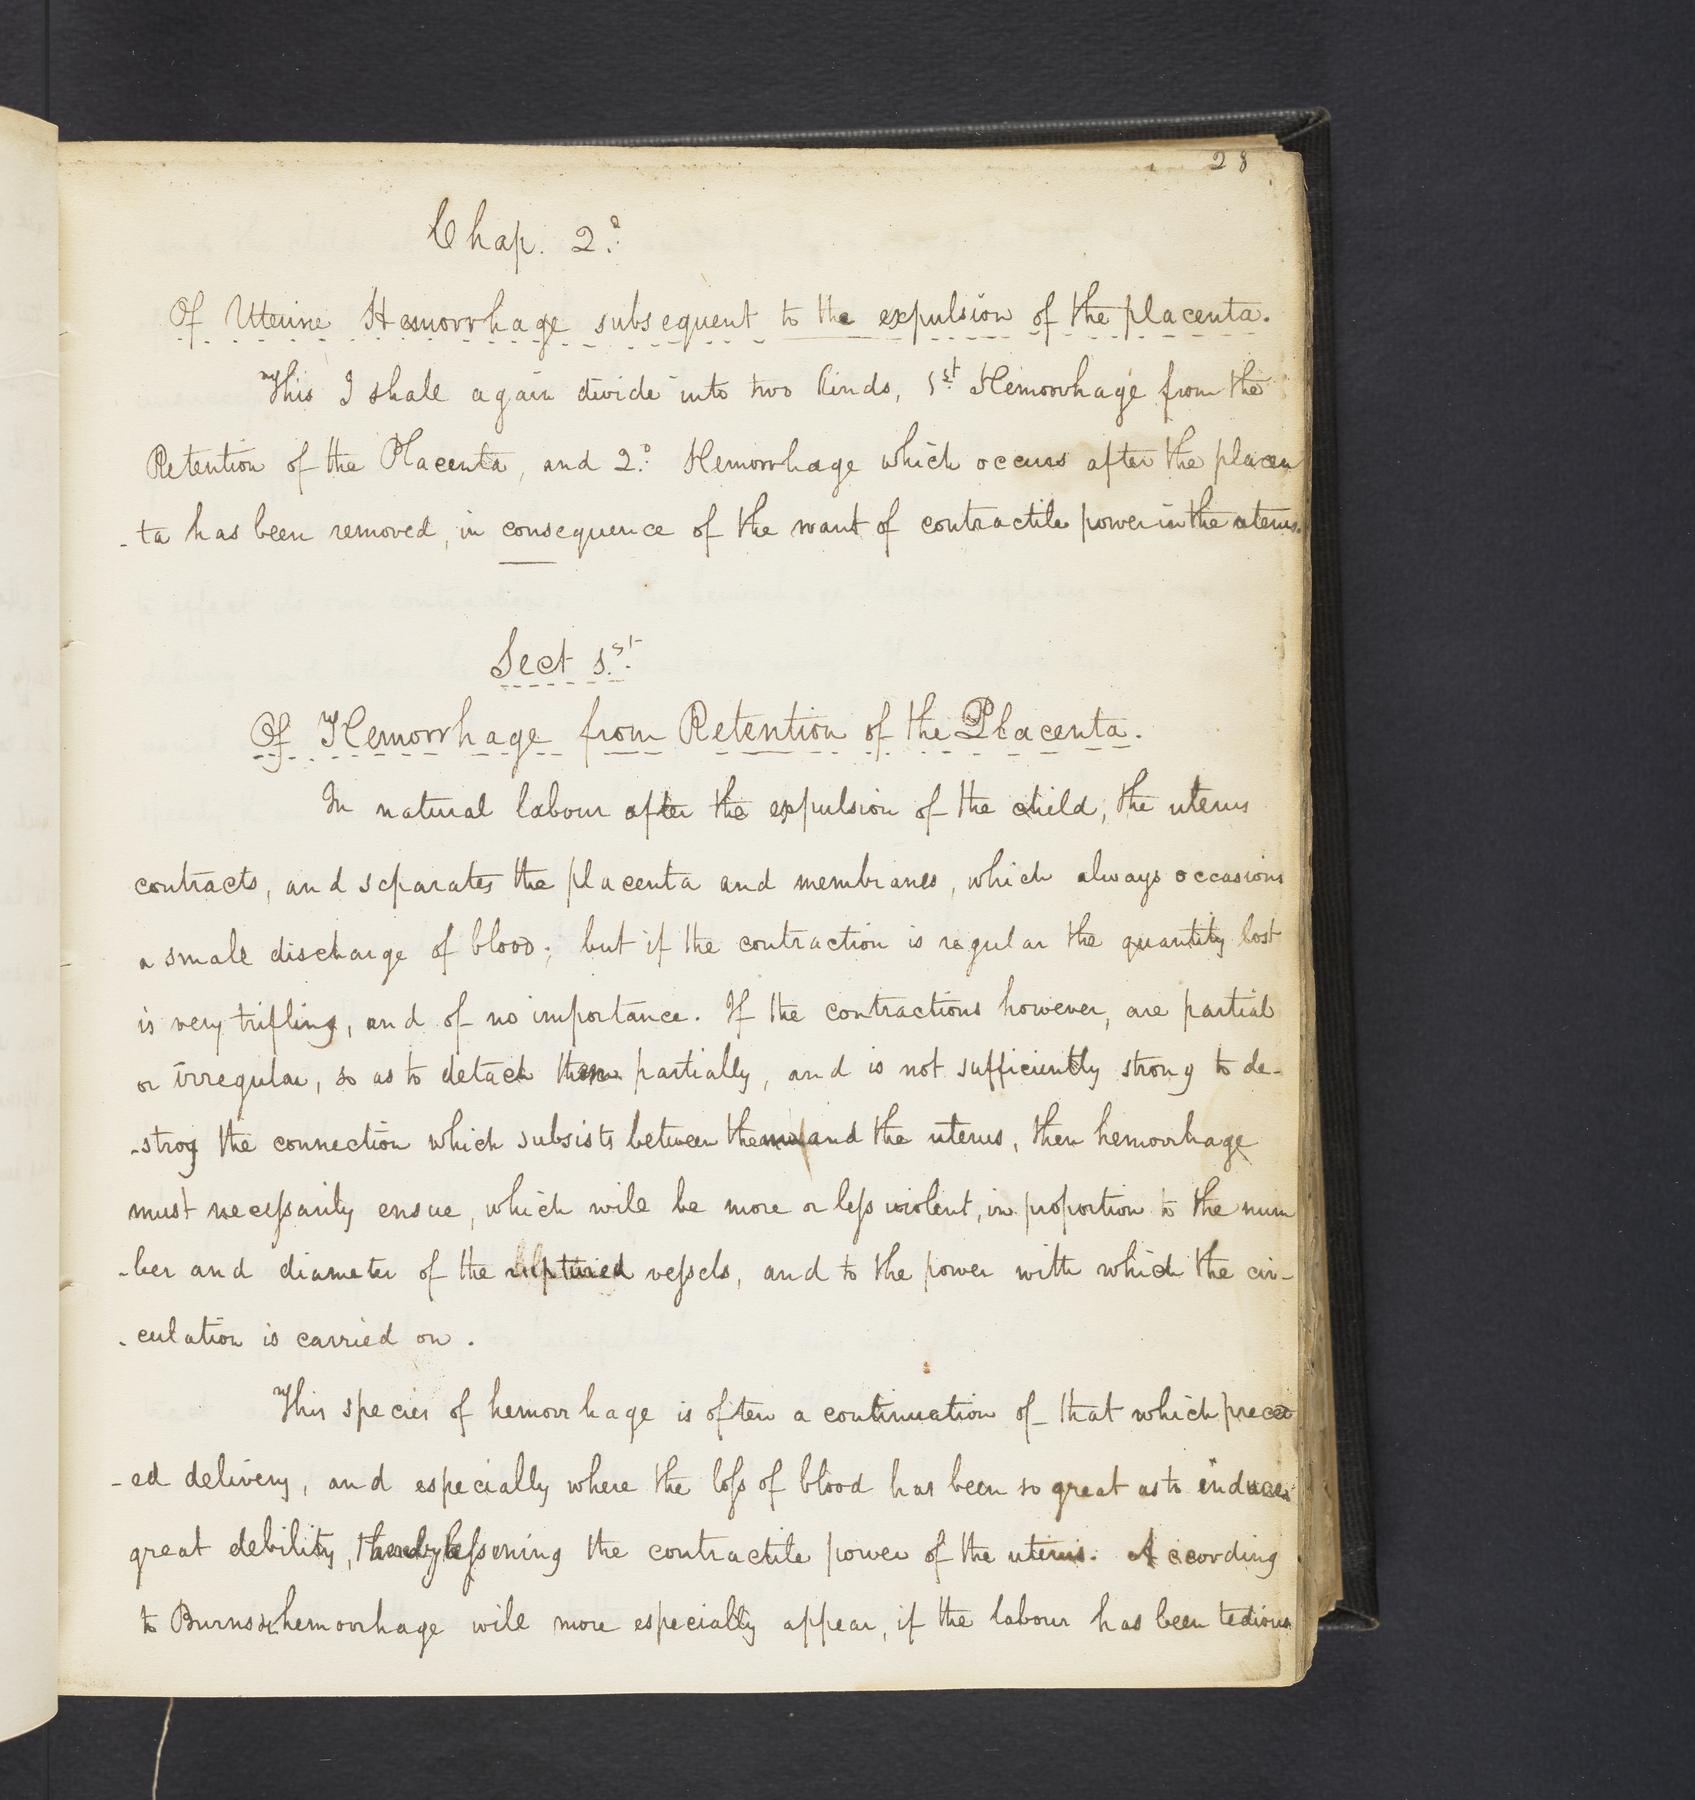 28
Chap. 2.d
Of Uterine Hemorrhage subsequent to the expulsion of the placenta.
This I shall again divide into two kinds, 1st Hemorrhage from the
Retention of the Placenta, and 2.d Hemorrhage which occurs after the placen
-ta has been removed, in consequence of the want of contractile power in the uterus.
Sect 1.st
Of Hemorrhage from Retention of the Placenta.
In natural labour after the expulsion of the child, the uterus
contracts, and separates the placenta and membranes, which always occasions
a small discharge of blood; but if the contraction is regular the quantity lost
is very trifling, and of no importance. If the contractions however, are partial
or irregular, so as to detach them partially, and is not sufficiently strong to de-
-stroy the connection which subsists between them and the uterus, then hemorrhage
must necessarily ensue, which will be more or less violent, in proportion to the num
-ber and diameter of the ruptured vessels, and to the power with which the cir-
-culation is carried on.
This species of hemorrhage is often a continuation of that which preced
-ed delivery, and especially where the loss of blood has been so great as to induce
great debility, thereby lessening the contractile power of the uterus. According
to Burns hemorrhage will more especially appear, if the labour has been tedious